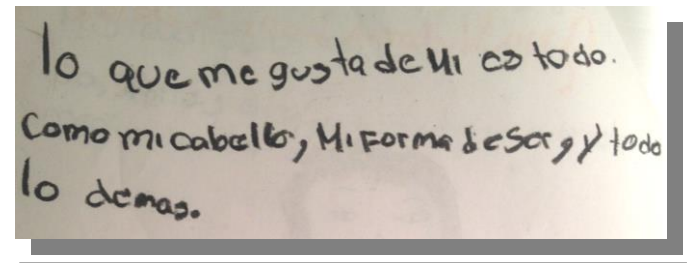 lo que me gusta de Mi es todo.
Como mi cabello, Mi Forma de ser, y todo
lo demas.